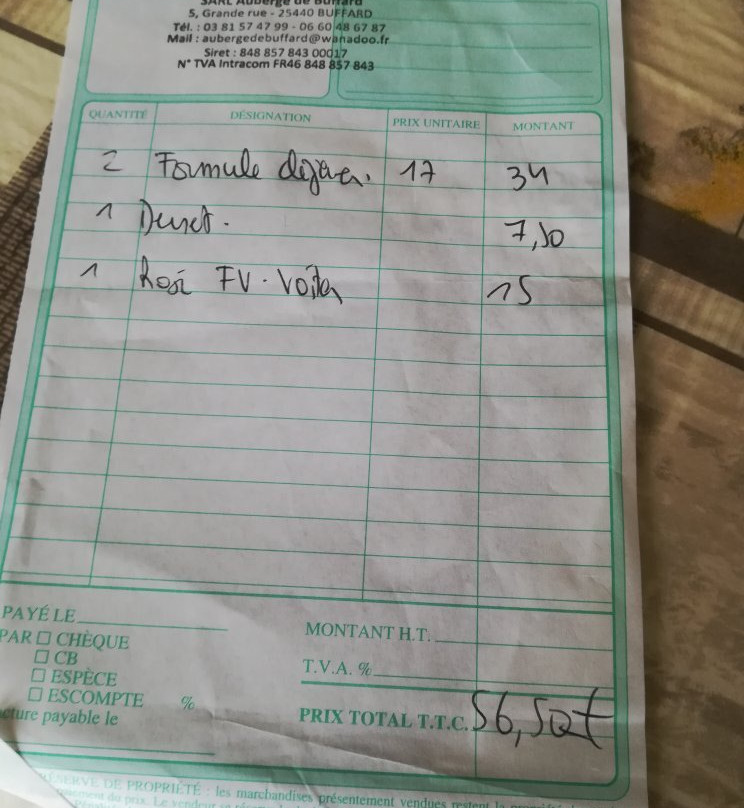 SARL Auberge de Buffard
5, Grande rue - 25440 BUFFARD
Tél. : 03 81 57 47 99 - 06 60 48 67 87
Mail : aubergedebuffard@wanadoo.fr
Siret : 848 857 843 00017
N° TVA Intracom FR46 848 857 843
QUANTITÉ DÉSIGNATION PRIX UNITAIRE MONTANT
2 Formule 17 34
1 7,50
1 Rosé 15
PAYÉ LE
PAR □ CHÈQUE
□ CB
□ ESPÈCE
□ ESCOMPTE %
cture payable le
MONTANT H.T.
T.V.A. %
PRIX TOTAL T.T.C. 56,50€
RÉSERVE DE PROPRIÉTÉ : les marchandises présentement vendues restent la
du prix. Le vendeur